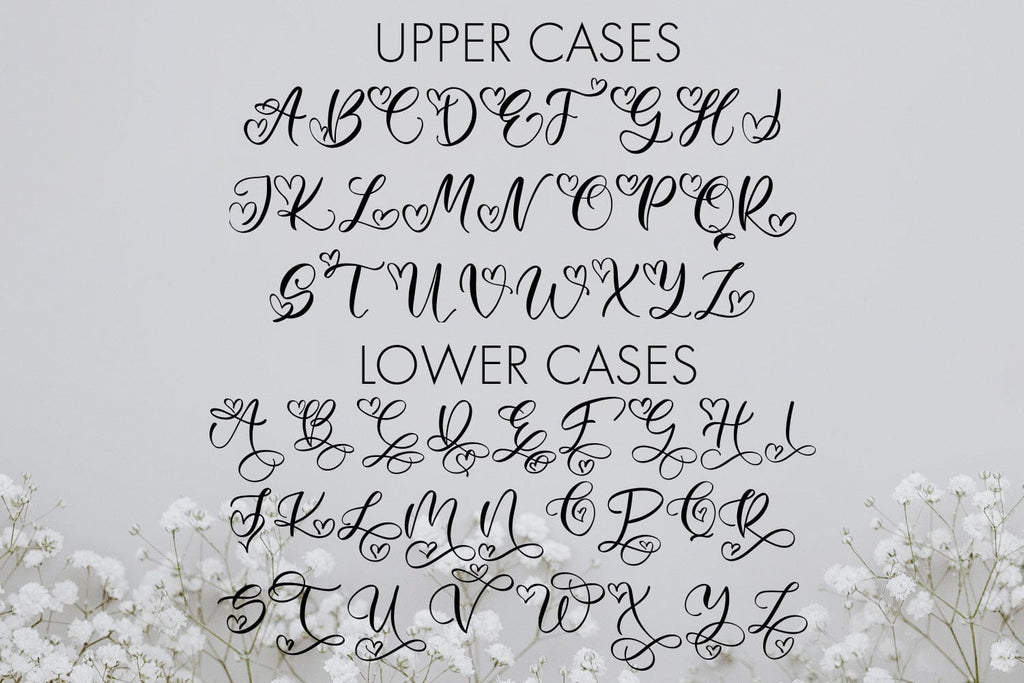 UPPER CASES
ABCDEFGHI
JKLMNOPQR
STUVWXYZ
LOWER CASES
ABCDEFGHI
JKLMNOPQR
STUVWXYZ